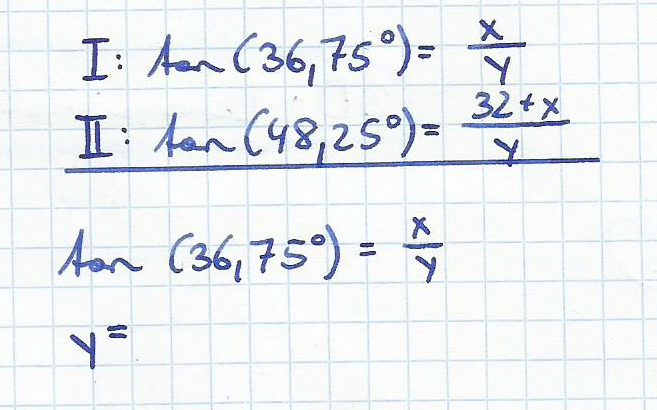 I: tan(36,75°) = x/y
II: tan(48,25°) = 32+x/y
tan (36,75°) = x/y
y =